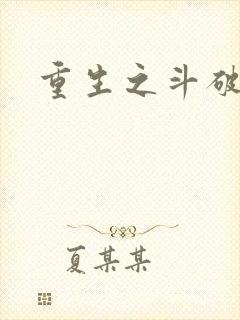 重生之斗破
夏某某